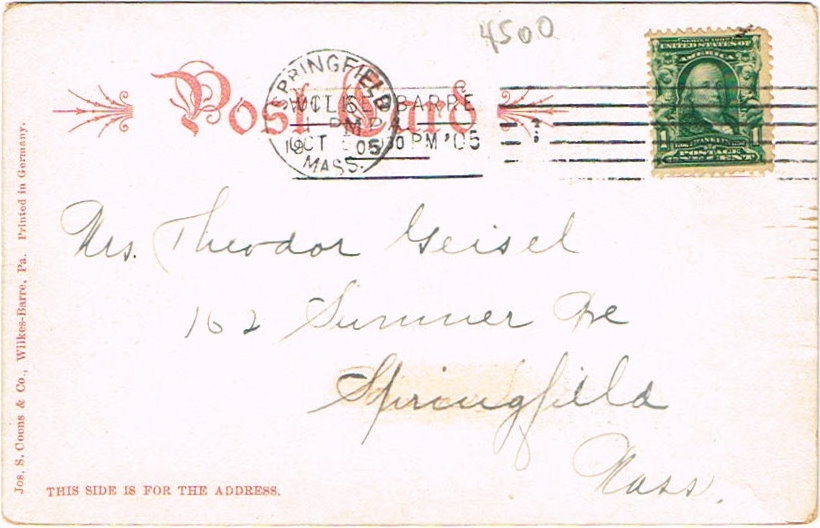 4500
Post Card
SPRINGFIELD
MASS.
WILKES-BARRE
OCT
30 PM '05
SERIES 1902
UNITED STATES OF
AMERICA
1 1
POSTAGE
ONE CENT
Mrs. Theodor Geisel
162 Sumner Ave
Springfield
Mass.
THIS SIDE IS FOR THE ADDRESS.
Jos. S. Coons & Co., Wilkes-Barre, Pa. Printed in Germany.